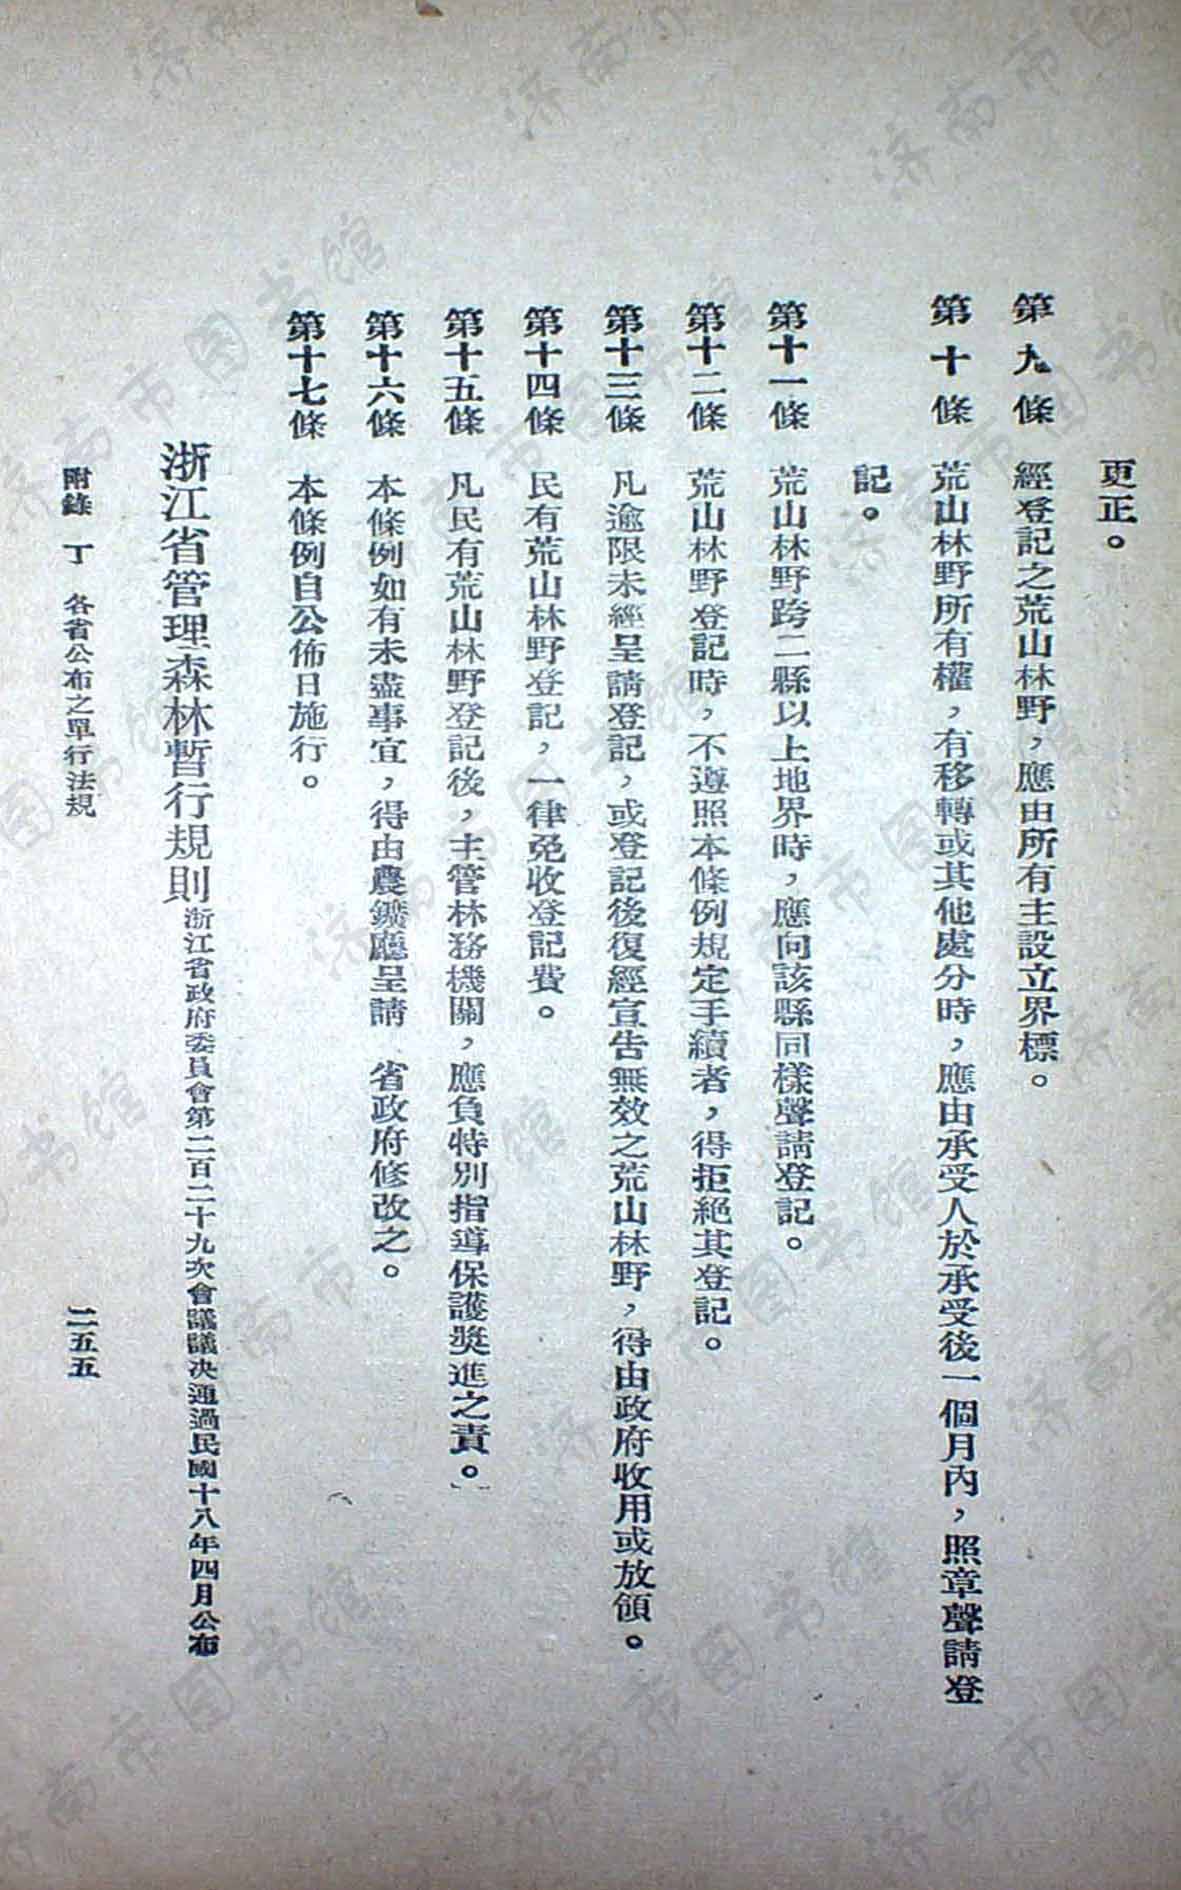 更正。
第九條　經登記之荒山林野，應由所有主設立界標。
第十條　荒山林野所有權，有移轉或其他處分時，應由承受人於承受後一個月內，照章聲請登
記。
第十一條　荒山林野跨二縣以上地界時，應向該縣同樣聲請登記。
第十二條　荒山林野登記時，不遵照本條例規定手續者，得拒絕其登記。
第十三條　凡逾限未經呈請登記，或登記後復經宣告無效之荒山林野，得由政府收用或放領。
第十四條　民有荒山林野登記，一律免收登記費。
第十五條　凡民有荒山林野登記後，主管林務機關，應負特別指導保護獎進之責。
第十六條　本條例如有未盡事宜，得由農鑛廳呈請　省政府修改之。
第十七條　本條例自公佈日施行。
浙江省管理森林暫行規則　浙江省政府委員會第二百二十九次會議議決通過民國十八年四月公布
附錄　丁　各省公布之單行法規　二五五
济南市图书馆